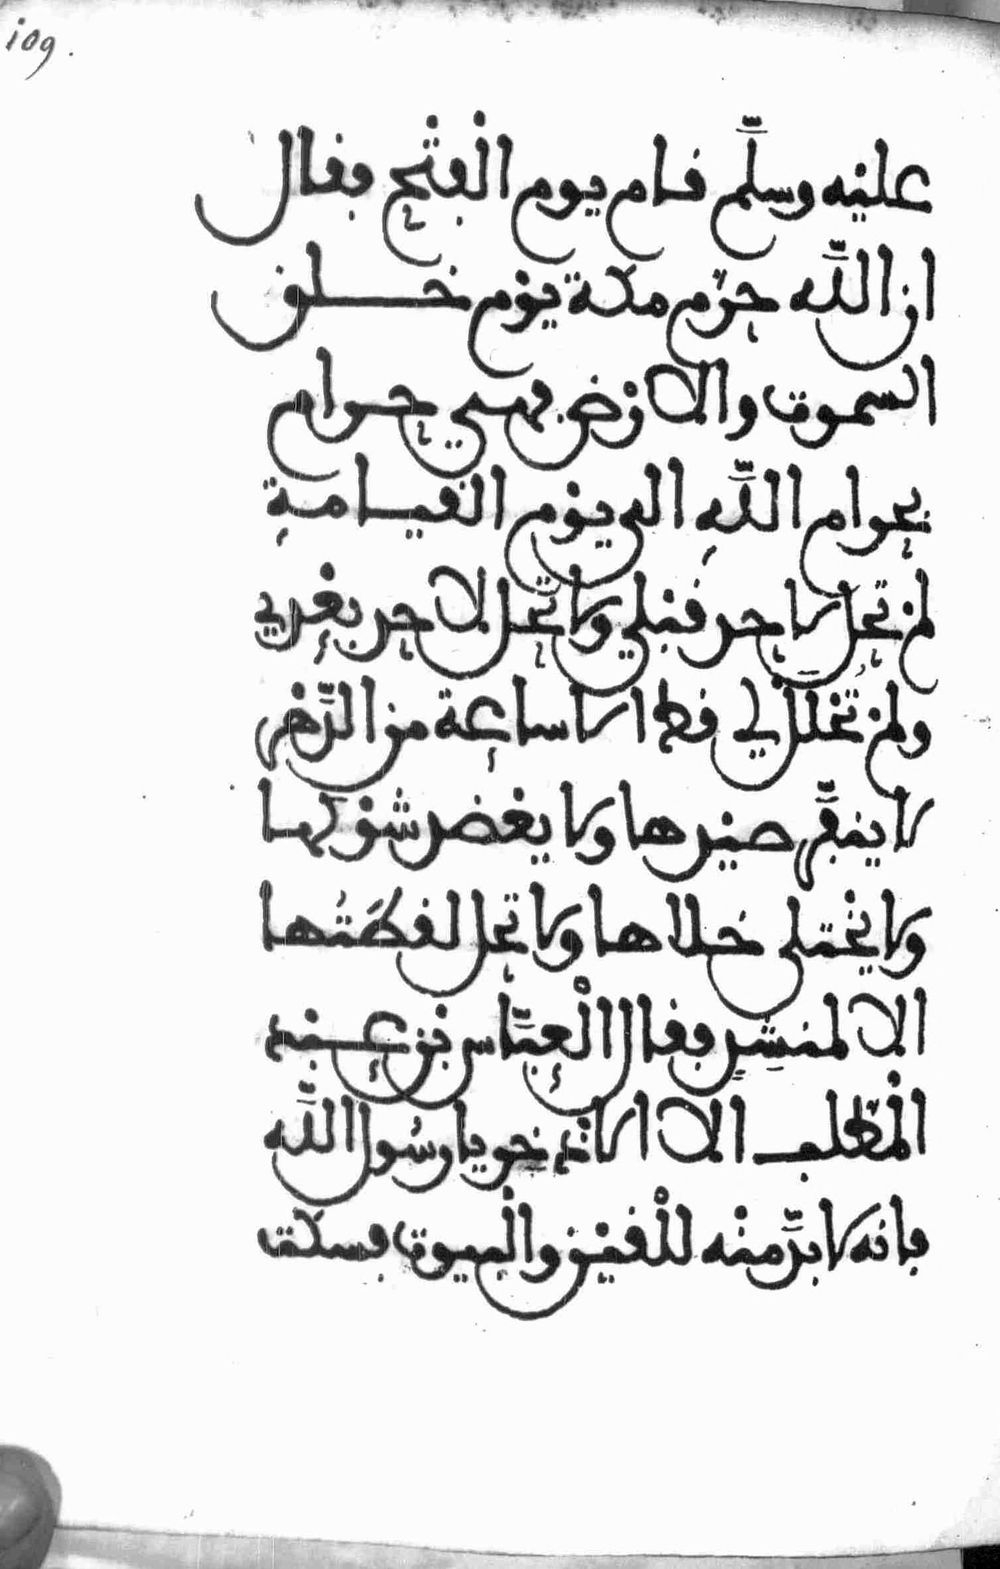 109.
عليه وسلّم قام يوم الْفتْح فقال
ان اللّه حرّم مكة يوْم خلق
السموت والارْض فهي حرام
بحرام اللّهِ الى يوْم القيامةِ
لمْ تحل لاحد قبْلي ولا تحل لاحد بعْدي
ولمْ تحْلل لي قط الا ساعة من الدّهْر
لا ينفّر صيْدها ولا يعْضد شوْكها
ولا يخْتلى خلاها ولا تحل لقطَتُها
الا لمنشِدٍ فقال الْعبّاس بْن عبْد
الْمطّلب الا الاذخر يا رسُول اللّه
فانه لا بدّ منْه للْقيْن والْبيوت فسكت